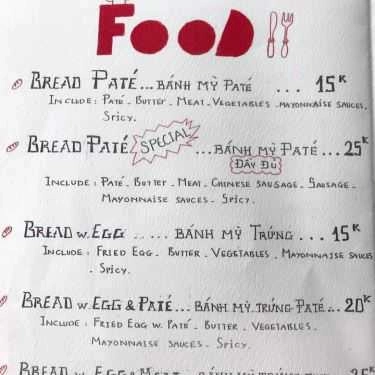 FOOD
BREAD PATÉ... BÁNH MỲ PATÉ ... 15K
INCLUDE: PATÉ. BUTTER. MEAT. VEGETABLES. MAYONNAISE SAUCES.
SPICY.
BREAD PATÉ SPECIAL ...BÁNH MỲ PATÉ... 25K
ĐẦY ĐỦ
INCLUDE: PATÉ. BUTTER. MEAT. CHINESE SAUSAGE. SAUSAGE.
MAYONNAISE SAUCES. SPICY.
BREAD W. EGG ..... BÁNH MỲ TRỨNG ... 15K
INCLUDE: FRIED EGG. BUTTER. VEGETABLES. MAYONNAISE SAUCES
. SPICY.
BREAD W. EGG & PATÉ... BÁNH MỲ TRỨNG PATÉ... 20K
INCLUDE: FRIED EGG W. PATÉ. BUTTER. VEGETABLES.
MAYONNAISE SAUCES. SPICY.